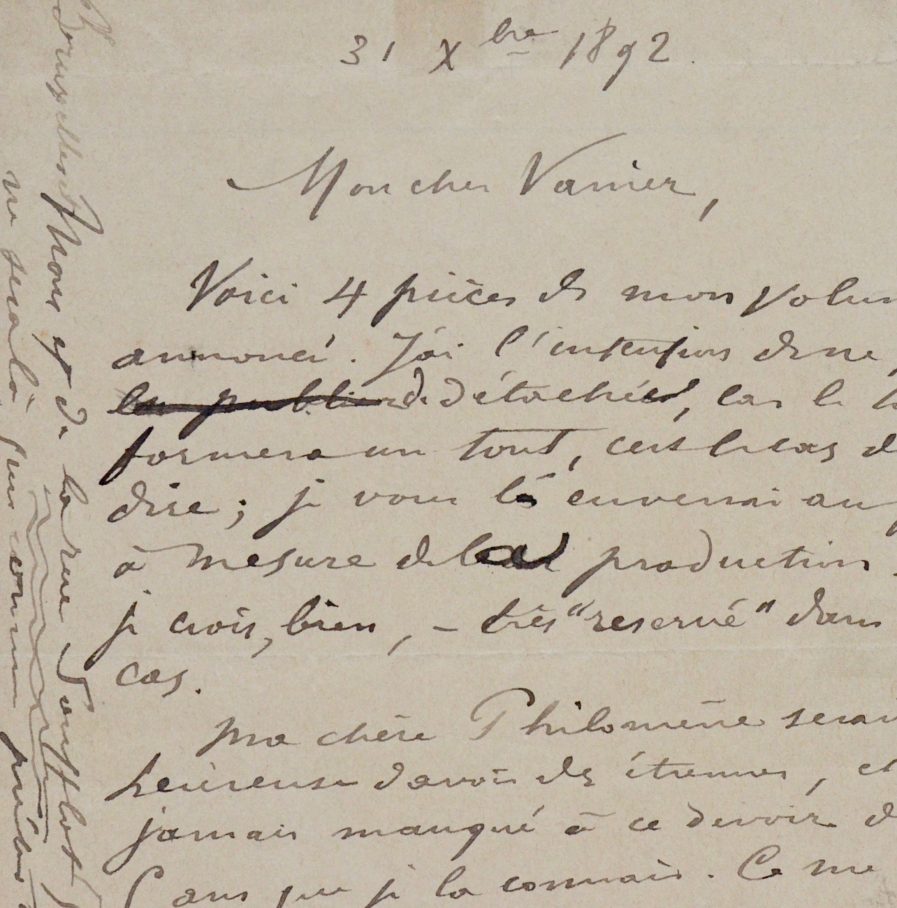 31 Xbre 1892.
Mon cher Vanier,
Voici 4 pièces de mon volum
annoncé. J'ai l'intention de ne
les publier de détachées, car le t
formera un tout, c'est le cas de
dire; je vous les enverrai au
à mesure de la production.
je crois, bien, – très "reservé" dans
cas.
Ma chère Philomène serait
heureuse d'avoir des étrennes, et
jamais manqué à ce devoir d
ans que je la connais. Ce me
la rue Soufflot
ne sera là, que comme